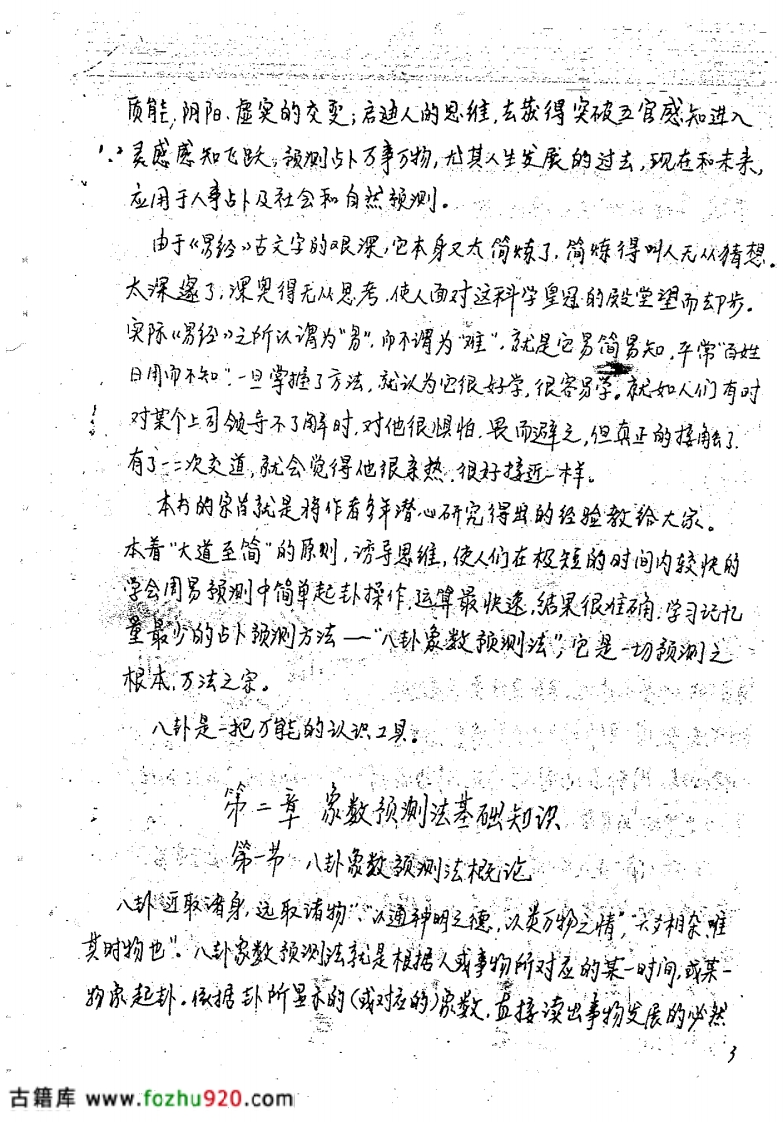 质能、阴阳、虚实的交变；启迪人的思维，去获得突破五官感知进入
灵感感知飞跃，预测占卜万事万物，尤其人生发展的过去，现在和未来，
应用于人事占卜及社会和自然预测。
由于《易经》古文字的艰深，它本身又太简炼了，简炼得叫人无从猜想。
太深邃了，深奥得无从思考，使人面对这科学皇冠的殿堂望而却步。
实际《易经》之所以谓为“易”，而不谓为“难”，就是它易简易知，平常“百姓
日用而不知”，一旦掌握了方法，就认为它很好学，很容易学。就如人们有时
对某个上司领导不了解时，对他很惧怕，畏而避之，但真正的接触了
有了一二次交道，就会觉得他很亲热，很好接近一样。
本书的宗旨就是将作者多年潜心研究得出的经验教给大家。
本着“大道至简”的原则，诱导思维，使人们在极短的时间内较快的
学会周易预测中简单起卦操作，运算最快速，结果很准确，学习记忆
量最少的占卜预测方法——“八卦象数预测法”，它是一切预测之
根本，万法之宗。
八卦是一把万能的认识工具。
第二章 象数预测法基础知识
第一节 八卦象数预测法概论
八卦“近取诸身，远取诸物”，“以通神明之德，以类万物之情”，“六爻相杂，唯
其时物也”。八卦象数预测法就是根据人或事物所对应的某一时间，或某一
物象起卦。依据卦所显示的（或对应的）象数，直接读出事物发展的必然
3
古籍库 www.fozhu920.com